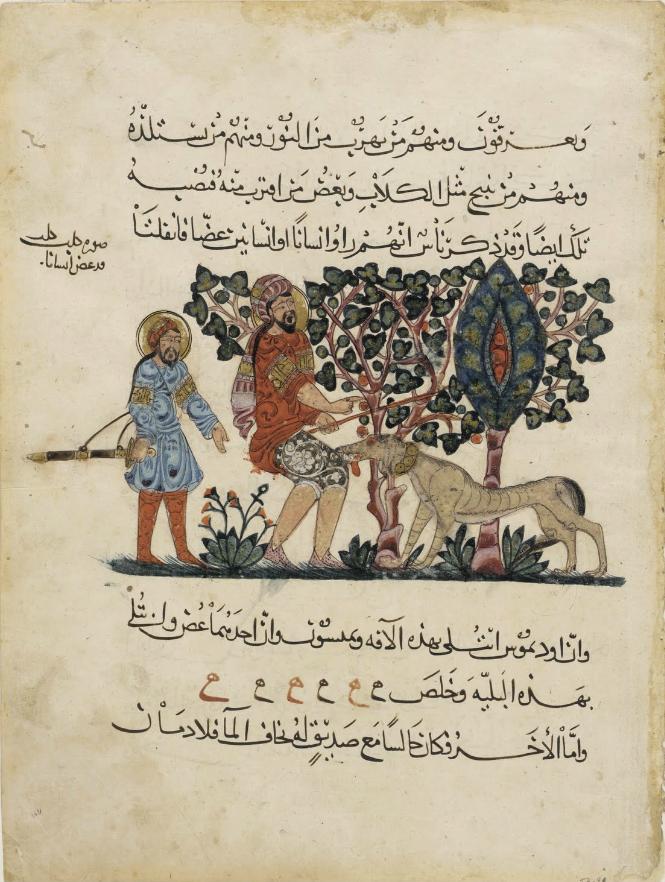 ومنهم من يهرب من النور ومنهم من يستلذه
ومنهم من ينبح مثل الكلاب ويعض من اقترب منه فتصيبه
تلك ايضا وقد ذكر ناس انهم راوا انسانا او انسانين عضا فانفلتا
صوره كلب كلب
قد عض انسانا
وان اوديموس ابتلى بهذه الافه وان احدهما عض وابتلى
بهذه البليه وخلص ه ه ه ه ه ه
واما الاخر فكان جالسا مع صديق له يخاف الما